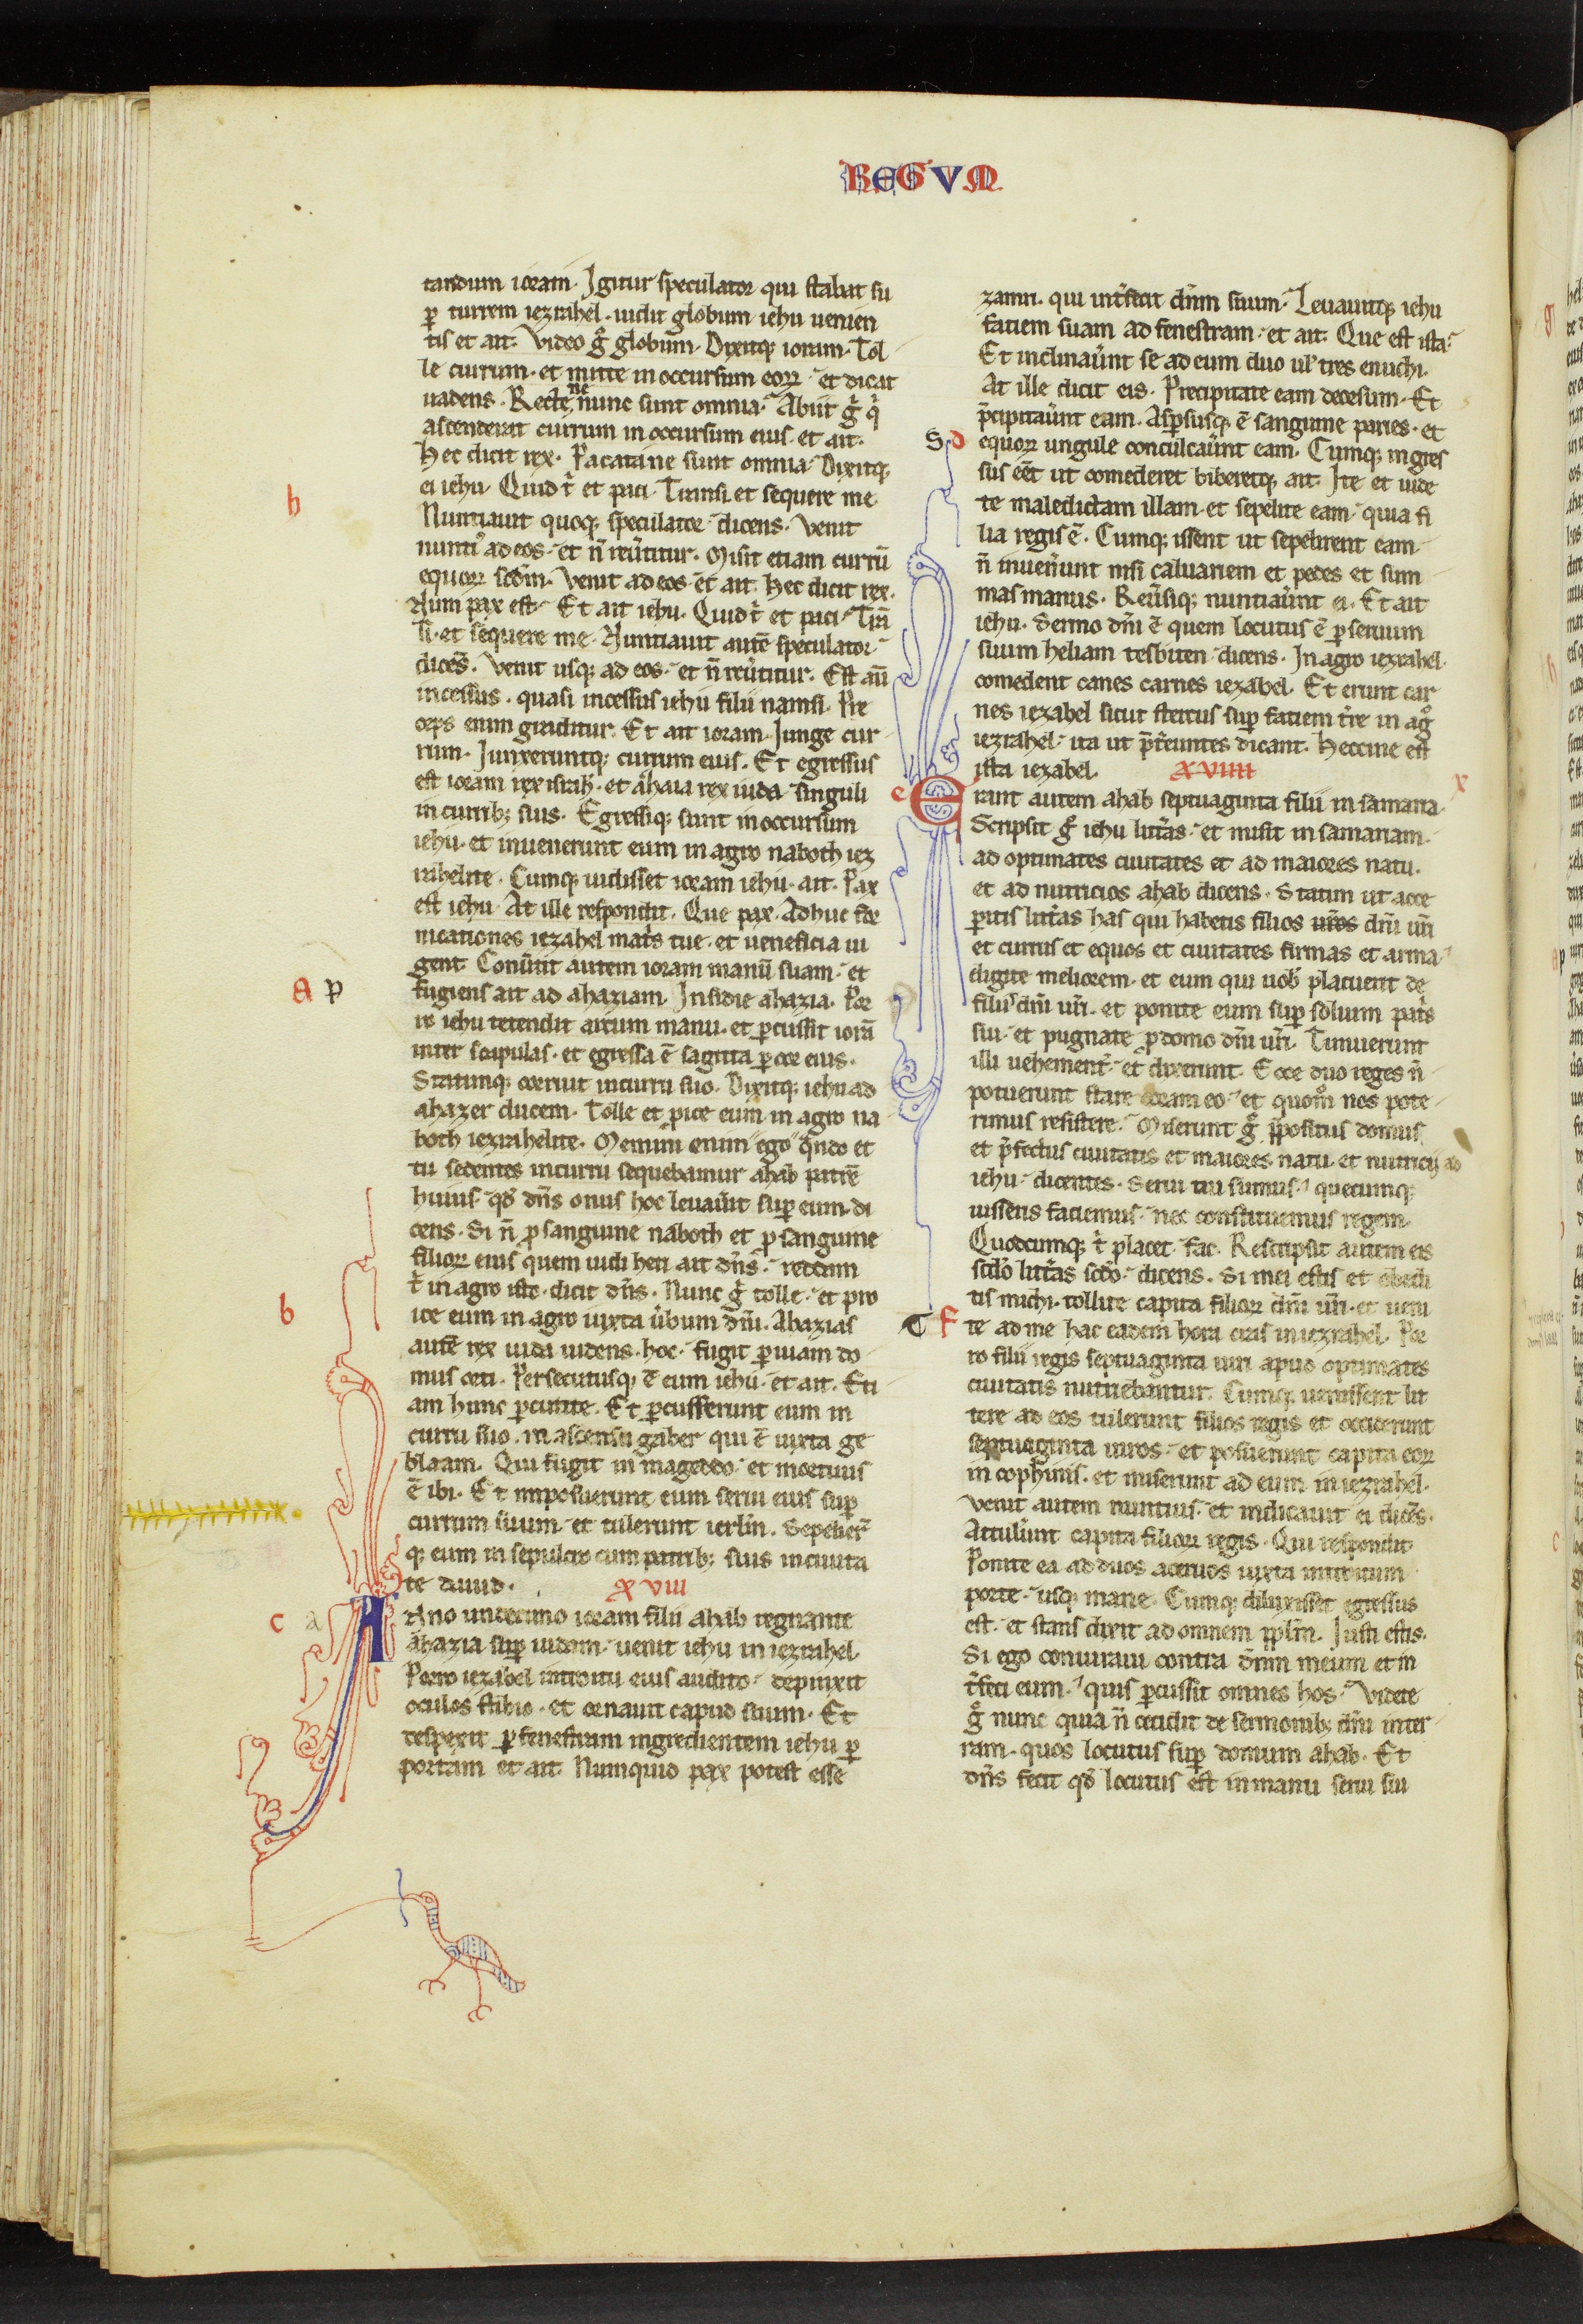 REGVM
tandum ioram. Igitur speculator qui stabat su
ꝑ turrem iezrahel. uidit globum iehu uenien
tis et ait. Video gͦ globum. Dixitqꝫ ioram. Tol
le currum. et mitte in occursum eoꝝ. et dicat
uadens. Recte ne nunc sunt omnia. Abiit gͥ qͥ
ascenderat currum in occursum eius. et ait.
Hec dicit rex. Pacata ne sunt omnia. Dixitqꝫ
ei iehu. Quid tͥ et paci. Transi et sequere me.
Nuntiauit quoqꝫ speculator. dicens. Venit
nuntiꝰ ad eos. et n̄ reu̾titur. Misit etiam currū
equoꝝ scdm̄. Venit ad eos et ait. Hec dicit rex.
Num pax est. Et ait iehu. Quid tͥ et paci. Trā
si. et sequere me. Nuntiauit autē speculator.
dicēs. Venit usqꝫ ad eos. et n̄ reu̾titur. Est aū
incessus. quasi incessus iehu filii namsi. Pre
ceps enim graditur. Et ait ioram. Iunge cur
rum. Iunxeruntqꝫ currum eius. Et egressus
est ioram rex israhł. et ahazia rex iuda. singuli
in curribꝫ suis. Egressiqꝫ sunt in occursum
iehu. et inuenerunt eum in agro naboth iez
rahelite. Cumqꝫ uidisset ioram iehu. ait. Pax
est iehu. At ille respondit. Que pax. Adhuc for
nicationes iezabel matͥs tue. et ueneficia ui
gent. Conu̾tit autem ioram manū suam. et
fugiens ait ad ahaziam. Insidie ahazia. Por
ro iehu tetendit arcum manu. et ꝑcussit iorā
inter scapulas. et egressa ē sagitta ꝑ cor eius.
Statimqꝫ corruit in curru suo. Dixitqꝫ iehu ad
ahazer ducem. Tolle et ꝓice eum in agro na
both iezrahelite. Memini enim ego qn̄do et
tu sedentes in curru sequebamur ahab patrē
huius. qd̓ dn̄s onus hoc leuau̾it suꝑ eum. di
cens. Si n̄ ꝓ sanguine naboth et ꝓ sanguine
filioꝝ eius quem uidi heri ait dn̄s. reddam
tͥ in agro isto. dicit dn̄s. Nunc gͥ tolle. et pro
ice eum in agro iuxta u̾bum dn̄i. Ahazias
autē rex iuda uidens. hoc. fugit ꝑ uiam do
mus orti. Persecutusqꝫ ē eum iehu. et ait. Eti
am hunc ꝑcutite. Et ꝑcusserunt eum in
curru suo. in ascensu gaber qui ē iuxta ge
blaam. Qui fugit in mageddo. et mortuus
ē ibi. Et imposuerunt eum serui eius suꝑ
currum suum. et tulerunt ierlm̄. Sepelier̄t
qꝫ eum in sepulcro cum patribꝫ suis in ciuita
te dauid. XVIII
Anno undecimo ioram filii ahab regnauit
ahazia suꝑ iudam. uenit iehu in iezrahel.
Porro iezabel introitu eius audito. depinxit
oculos stibio. et ornauit capud suum. Et
respexit ꝑ fenestram ingredientem iehu ꝑ
portam et ait. Numquid pax potest esse
zamri. qui int̾fecit dn̄m suum. Leuauitqꝫ iehu
faciem suam ad fenestram. et ait. Que est ista.
Et inclinau̾unt se ad eum duo uł tres enuchi.
At ille dicit eis. Precipitate eam deorsum. Et
p̄cipitau̾unt eam. Aspersusqꝫ ē sanguine paries. et
equoꝝ ungule conculcau̾unt eam. Cumqꝫ ingres
sus eēt ut comederet biberetqꝫ ait. Ite et uide
te maledictam illam. et sepelite eam. quia fi
lia regis ē. Cumqꝫ issent ut sepelirent eam.
n̄ inuen̾unt nisi caluariem et pedes et sum
mas manus. Reu̾siqꝫ nuntiau̾unt ei. Et ait
iehu. Sermo dn̄i ē quem locutus ē ꝑ seruum
suum heliam tesbiten. dicens. In agro iezrahel.
comedent canes carnes iezabel. Et erunt car
nes iezabel sicut stercus suꝑ faciem t̾re in agͦ
iezrahel. ita ut p̄t̾euntes dicant. Heccine est
ista iezabel. XVIIII
Erant autem ahab septuaginta filii in samaria.
Scripsit gͥ iehu litt̾as. et misit in samariam.
ad optimates ciuitates et ad maiores natu.
et ad nutricios ahab dicens. Statim ut acce
ꝑitis litt̾as has qui habetis filios ur̄os dn̄i ur̄i
et currus et equos et ciuitates firmas et arma.
eligite meliorem. et eum qui uob̓ placuerit de
filiis dn̄i ur̄i. et ponite eum suꝑ solium patͥs
sui. et pugnate ꝓ domo dn̄i ur̄i. Timuerunt
illi uehement̾. et dixerunt. Ecce duo reges n̄
potuerunt stare coram eo. et quom̊ nos pote
rimus resistere. Miserunt gͥ p̄positus domus
et p̄fectus ciuitatis et maiores natu. et nutricij ad
iehu. dicentes. Serui tui sumus. quecumqꝫ
iusseris faciemus. nec constituemus regem.
Quodcumqꝫ tͥ placet. fac. Rescripsit autem eis
scd̓o litt̾as scd̓o. dicens. Si mei estis et obedi
tis michi. tollite capita filioꝝ dn̄i ur̄i. et ueni
te ad me hac eadem hora cras in iezrahel. Por
ro filii regis septuaginta uiri apud optimates
ciuitatis nutriebantur. Cumqꝫ uenissent lit
tere ad eos tulerunt filios regis et occiderunt
septuaginta uiros. et posuerunt capita eoꝝ
in cophinis. et miserunt ad eum in iezrahel.
Venit autem nuntius. et indicauit ei dicēs.
Attul̾unt capita filioꝝ regis. Qui respondit.
Ponite ea ad duos aceruos iuxta introitum
porte. usqꝫ mane. Cumqꝫ diluxisset egressus
est. et stans dixit ad omnem pp̄lm̄. Iusti estis.
Si ego coniuraui contra dn̄m meum et in
t̾feci eum. quis ꝑcussit omnes hos. Videte
gͦ nunc quia n̄ cecidit de sermonibꝫ dn̄i inter
ram. quos locutus suꝑ domum ahab. Et
dn̄s fecit qd̓ locutus est in manu serui sui
b
a p
b
c a
S d
e
x
T f